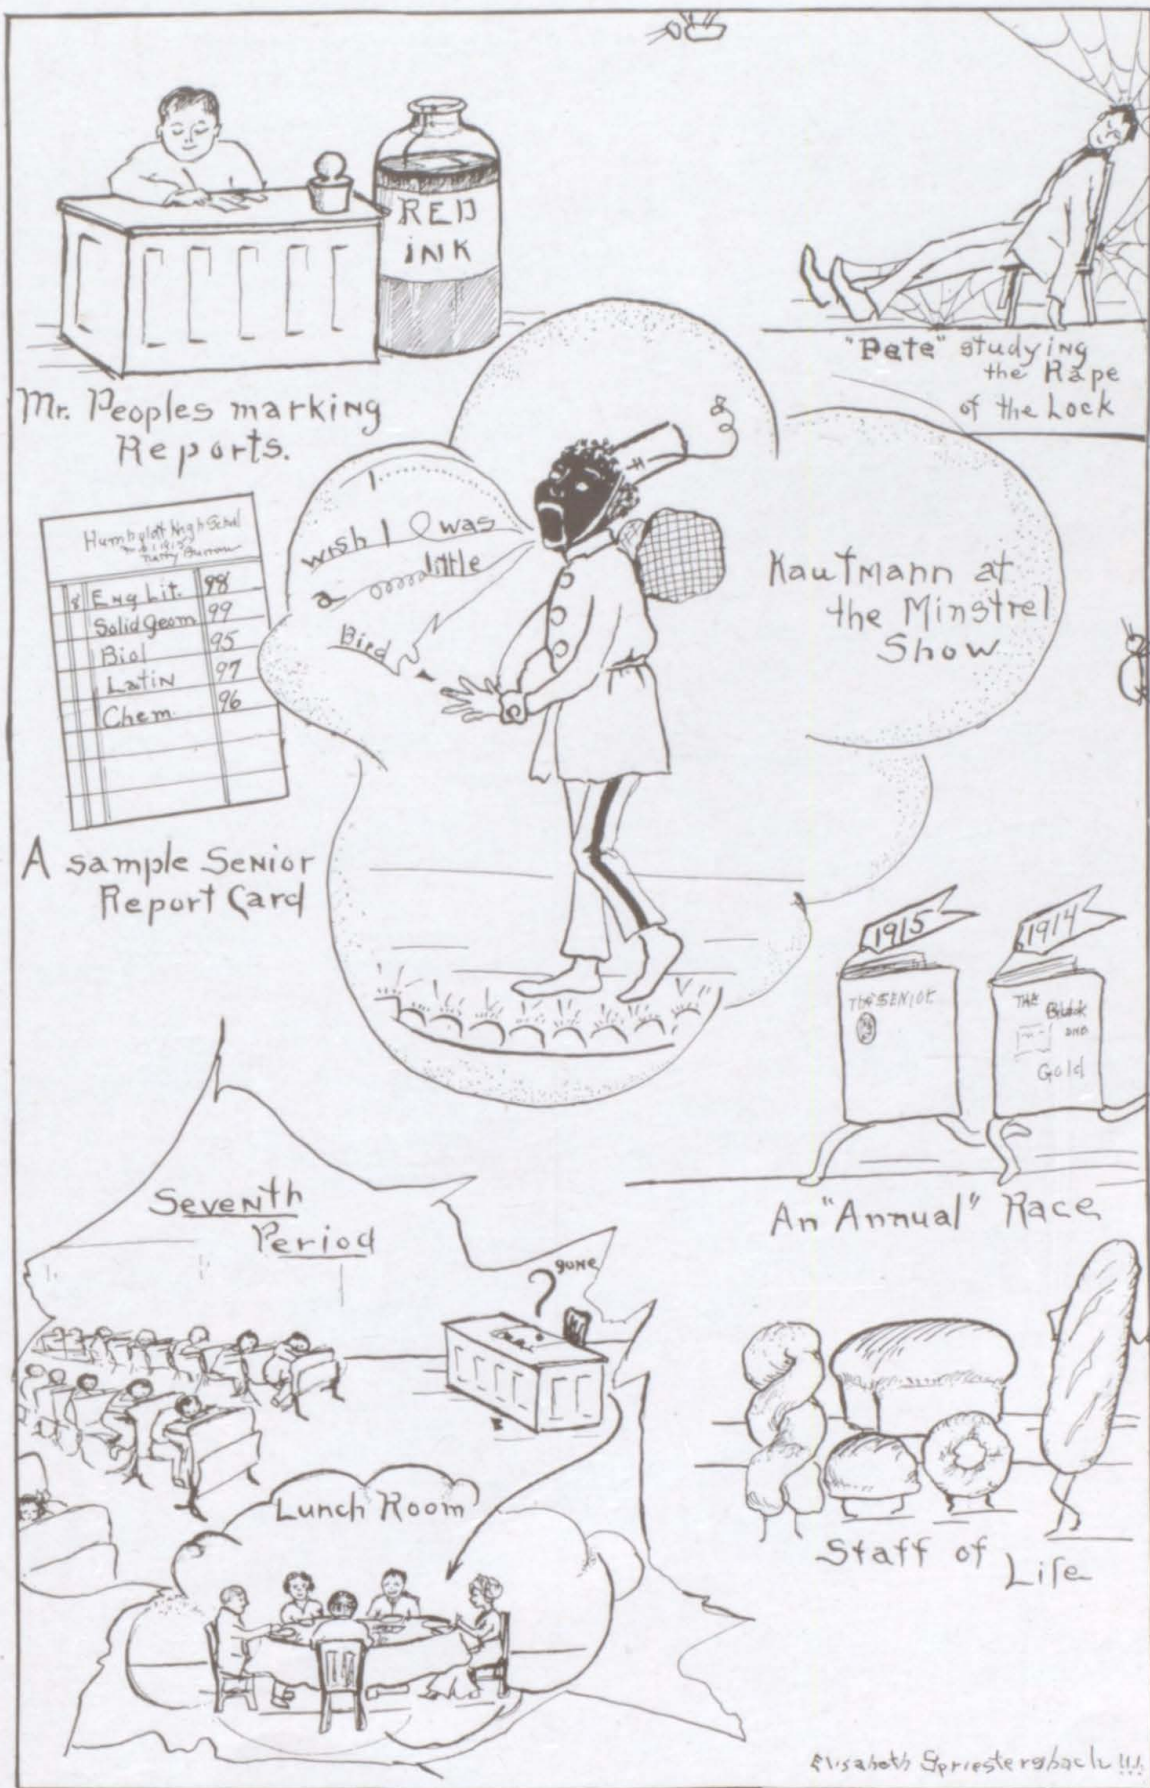 RED
INK
Mr. Peoples marking
Reports.
"Pete" studying
the Rape
of the Lock
I
wish I was
a little
Bird
Kaufmann at
the Minstrel
Show
High School
8 Eng Lit. 98
Solid Geom. 99
Biol 95
Latin 97
Chem. 96
A sample Senior
Report Card
1915
THE SENIOR
1914
THE Black
AND
Gold
An "Annual" Race
Seventh
Period
? gone
Lunch Room
Staff of Life
Elisabeth